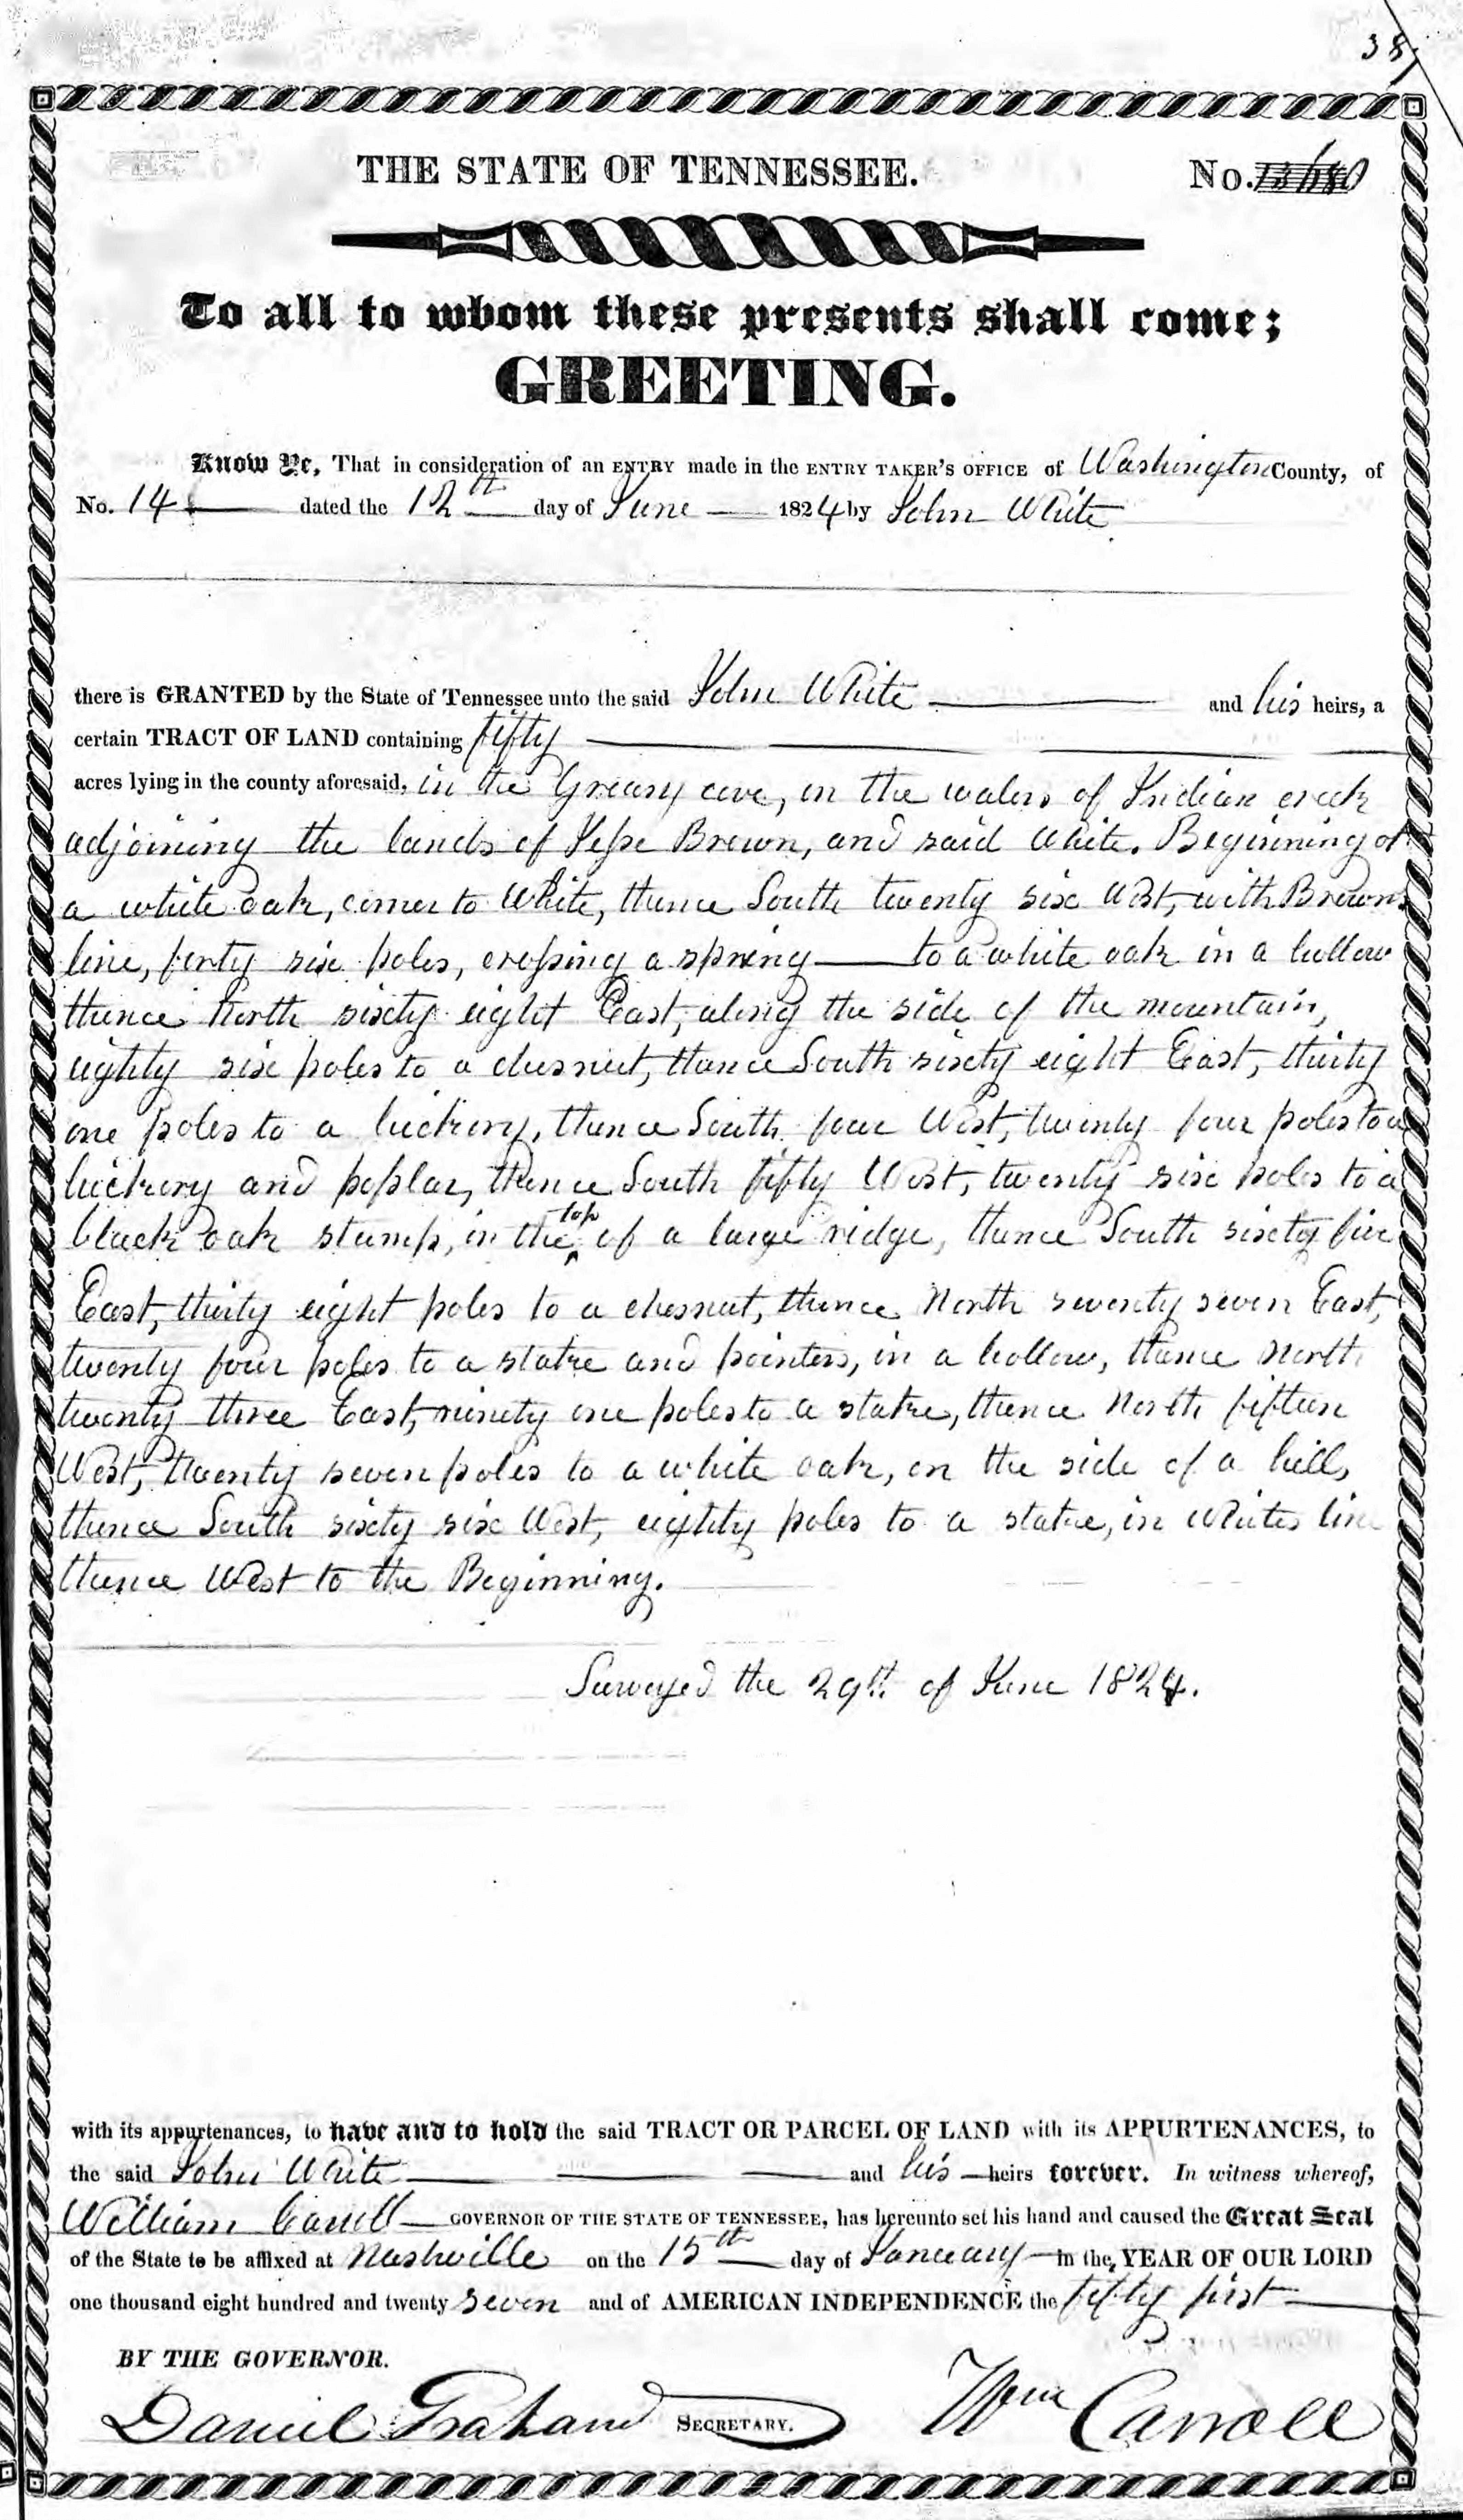 38
THE STATE OF TENNESSEE. No.
To all to whom these presents shall come;
GREETING.
Know Ye, That in consideration of an ENTRY made in the ENTRY TAKER'S OFFICE of Washington County, of
No. 14 dated the 12th day of June 1824 by John White
there is GRANTED by the State of Tennessee unto the said John White and his heirs, a
certain TRACT OF LAND containing fifty
acres lying in the county aforesaid, in the Greasy cove, on the waters of Indian creek
adjoining the lands of Jesse Brown, and said White. Beginning at
a white oak, corner to White, thence South twenty six West, with Browns
line, forty six poles, crossing a spring to a white oak in a hollow
thence North sixty eight East, along the side of the mountain,
eighty six poles to a chesnut, thence South sixty eight East, thirty
one poles to a hickory, thence South four West, twenty four poles to a
hickory and poplar, thence South fifty West, twenty six poles to a
black oak stump, in the top of a large ridge, thence South sixty five
East, thirty eight poles to a chesnut, thence North seventy seven East,
twenty four poles to a stake and pointers, in a hollow, thence North
twenty three East, ninety one poles to a stake, thence North fifteen
West, twenty seven poles to a white oak, on the side of a hill,
thence South sixty six West, eighty poles to a stake, in Whites line
thence West to the Beginning.
Surveyed the 29th. of June 1824.
with its appurtenances, to have and to hold the said TRACT OR PARCEL OF LAND with its APPURTENANCES, to
the said John White and his heirs forever. In witness whereof,
William Carroll GOVERNOR OF THE STATE OF TENNESSEE, has hereunto set his hand and caused the Great Seal
of the State to be affixed at Nashville on the 15th day of January in the, YEAR OF OUR LORD
one thousand eight hundred and twenty seven and of AMERICAN INDEPENDENCE the fifty first
BY THE GOVERNOR.
Daniel Graham SECRETARY. Wm Carroll